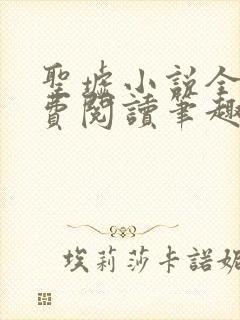 聖墟小說全
費閱讀筆趣
埃莉莎卡諾妮